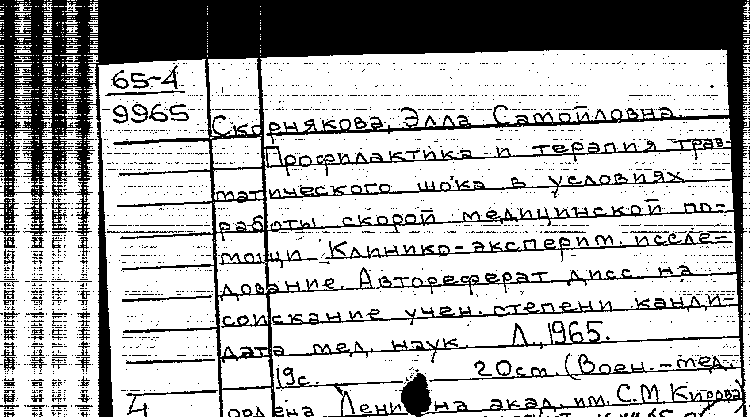 65-4
9965
Скорнякова, Элла Самойловна.
Профилактика и терапия трав-
матического шока в условиях
работы скорой медицинской по-
мощи Клинико-эксперим. иссле-
дование. Автореферат дисс. на
соискание учен. степени канди-
дата мед. наук. Л., 1965.
19с. 20см. (Воен.-мед.
4 ордена Ленина акад. им. С.М. Кирова)